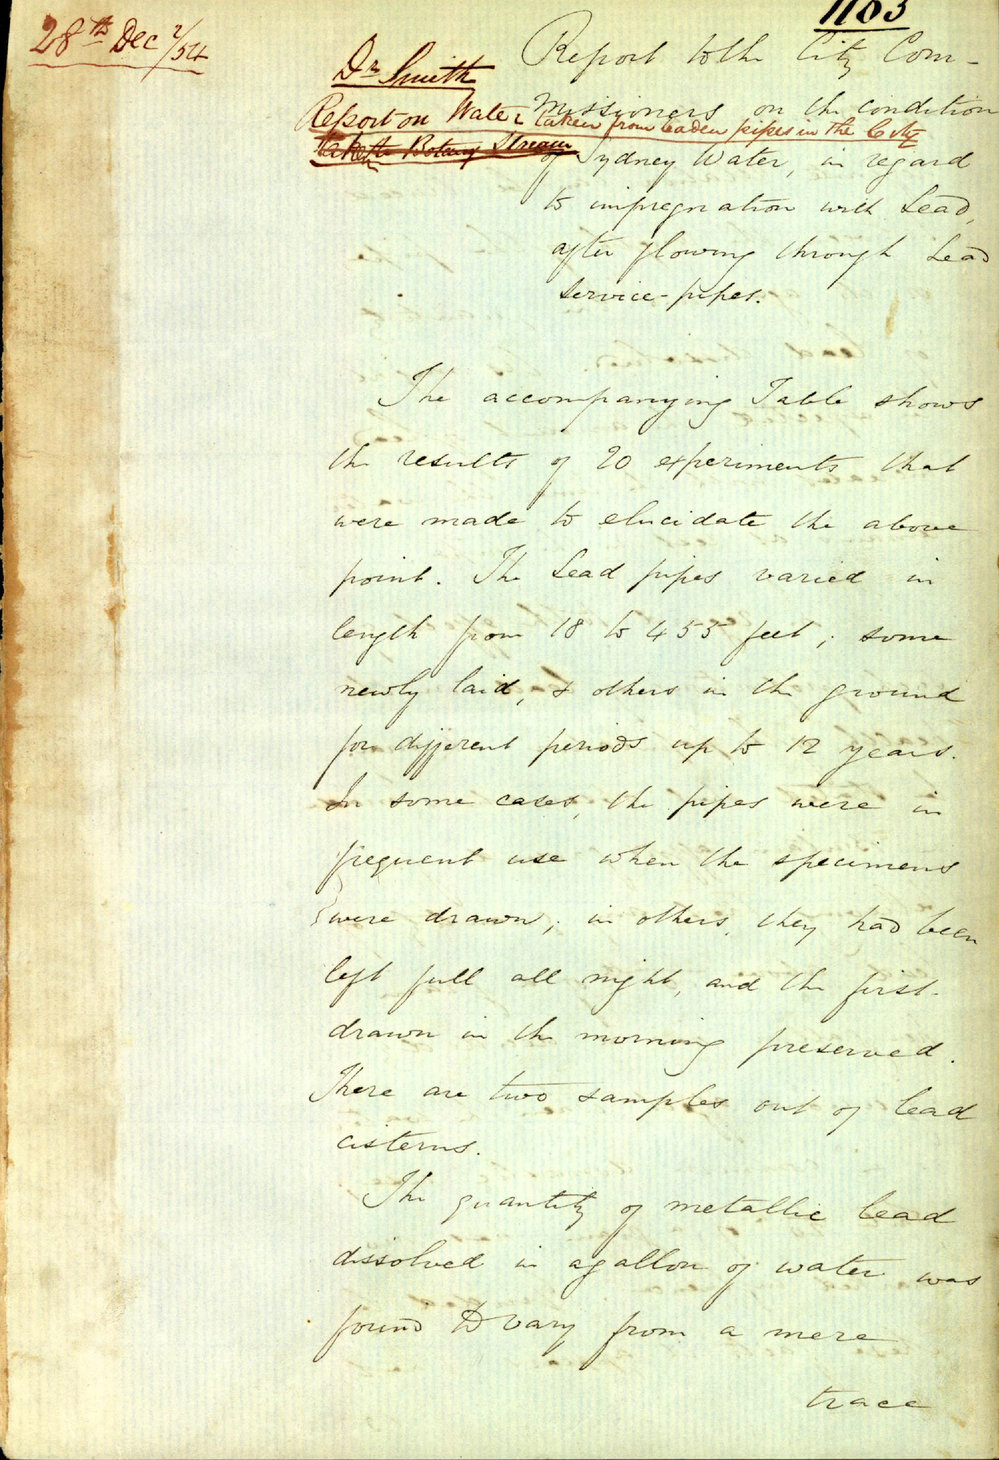 1103
28th Dec r/54
Dr Smith
Report on Water taken from leaden pipes in the City
taken the Botany Stream
Report to the City Com-
missioners on the condition
of Sydney Water, in regard
to impregnation with Lead,
after flowing through Lead
Service-pipes.
The accompanying Table shows
the results of 20 experiments that
were made to elucidate the above
point. The Lead pipes varied in
length from 18 to 455 feet; some
newly laid, & others in the ground
for different periods up to 12 years.
In some cases, the pipes were in
frequent use when the specimens
were drawn; in others, they had been
left full all night, and the first-
drawn in the morning preserved.
There are two samples out of lead
cisterns.
The quantity of metallic lead
dissolved in a gallon of water was
found to vary from a mere
trace